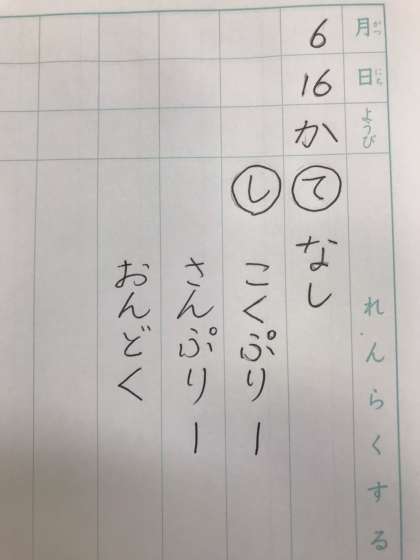 月がつ
日にち
ようび
れんらくする
6
16
か
て なし
し こくぷりー
さんぷりー
おんどく